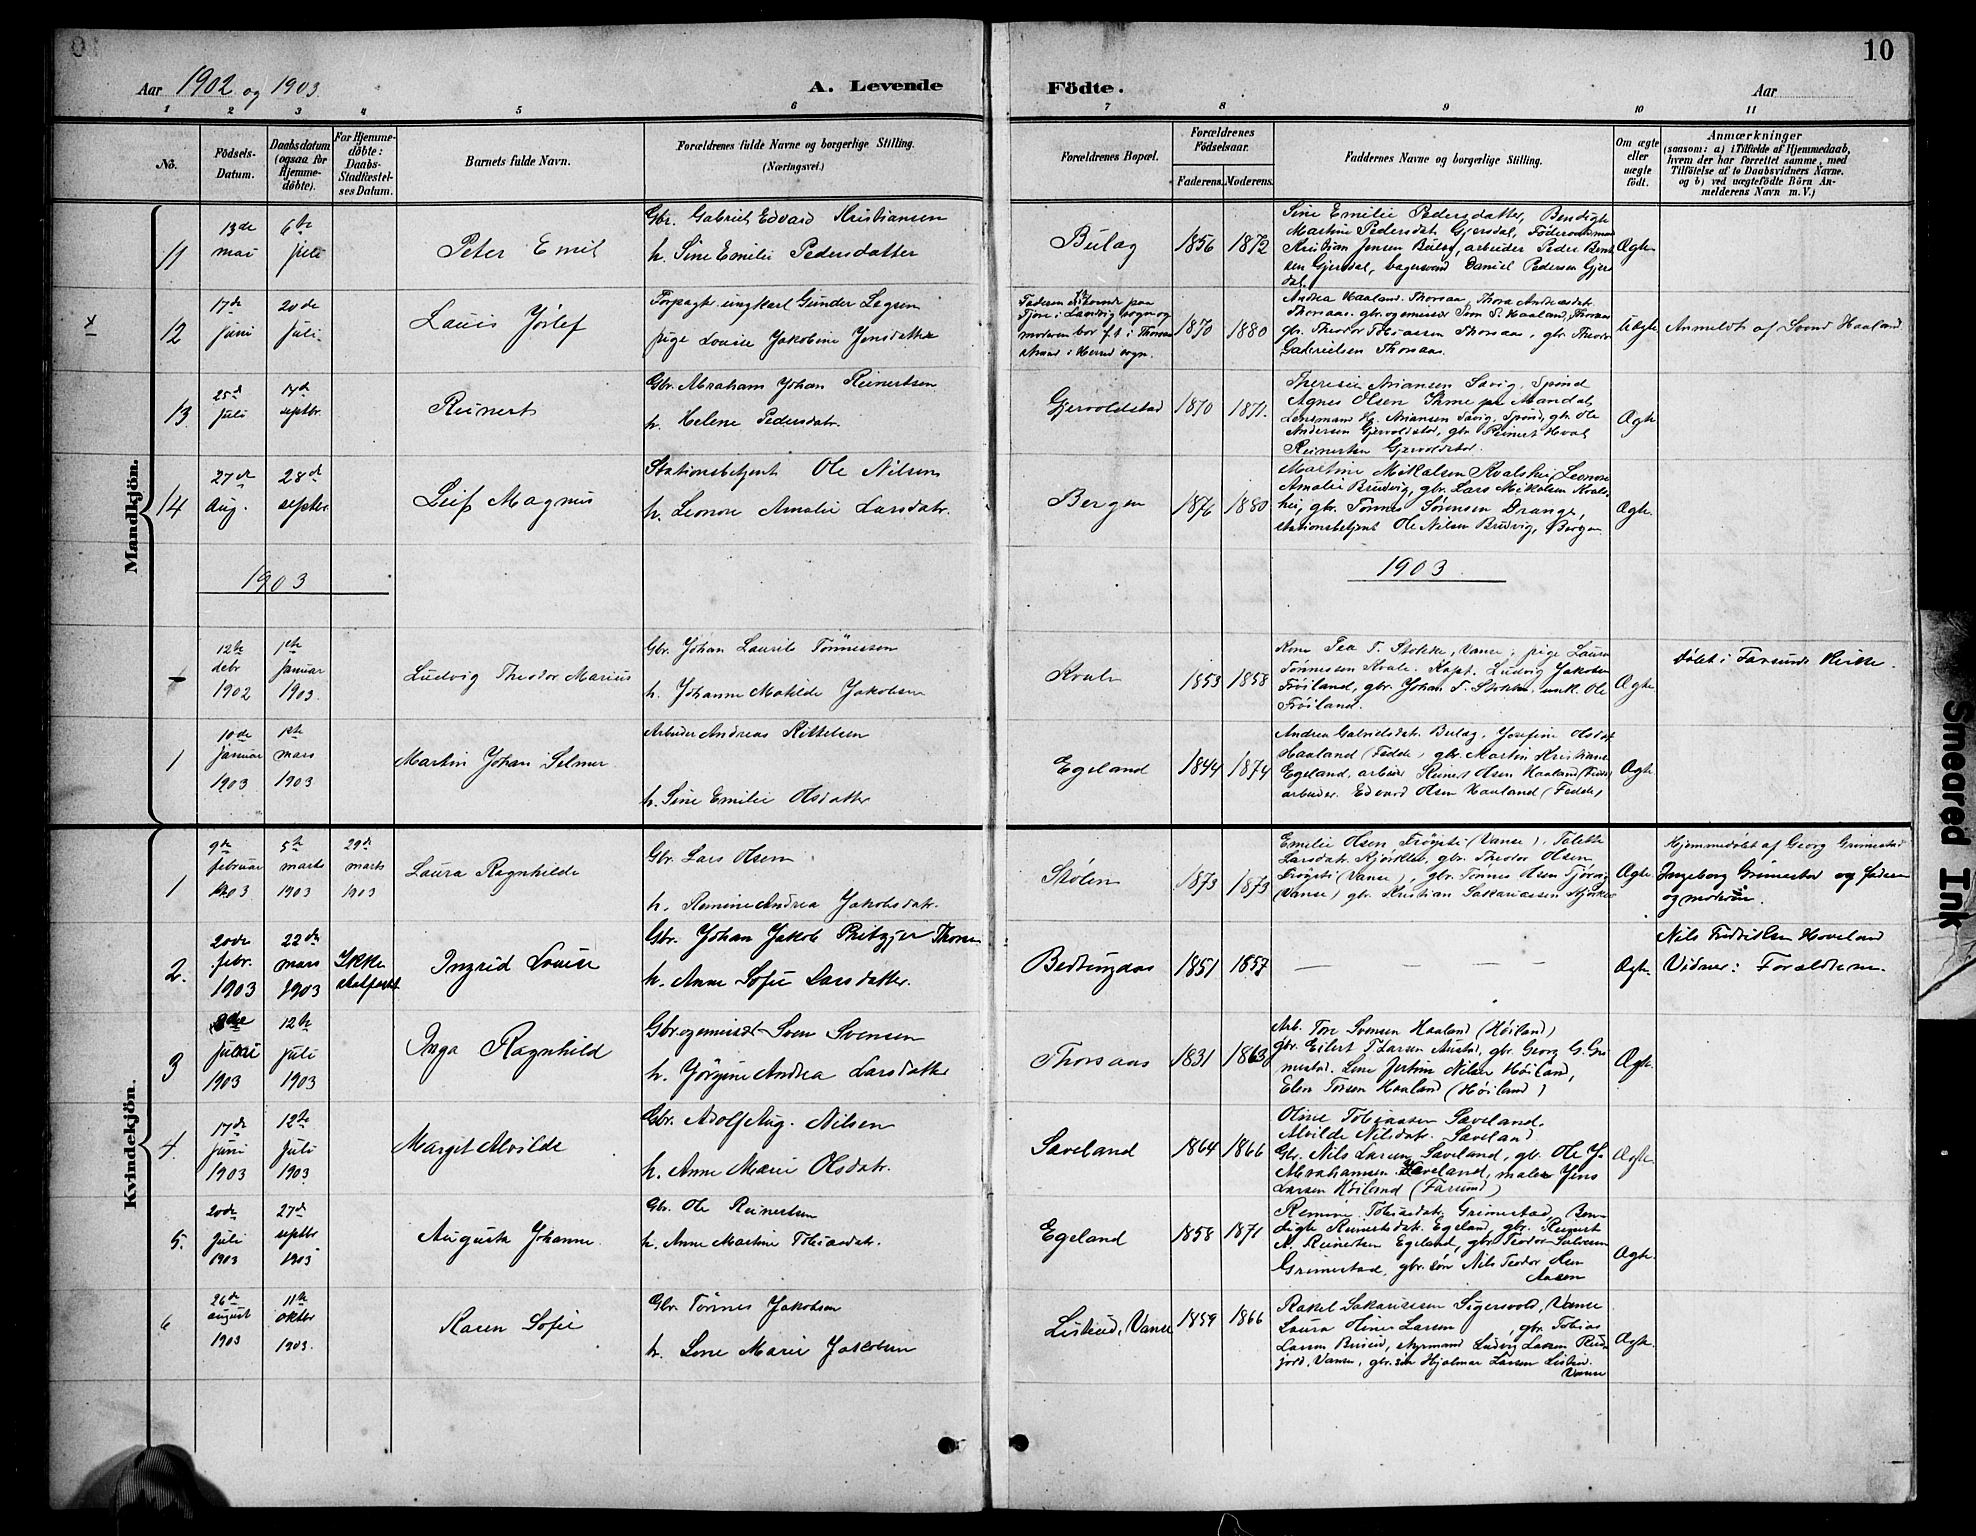 10
Aar 1902 og 1903.
A. Levende Födte.
Aar
1 2 3 4 5 6 7 8 9 10 11
No.
Födsels-Datum.
Daabsdatum (ogsaa for Hjemmedöbte).
For Hjemmedöbte: Daabs-Stadfæstelses Datum.
Barnets fulde Navn.
Forældrenes fulde Navne og borgerlige Stilling.
(Næringsvei.)
Forældrenes Bopæl.
Forældrenes Födselsaar.
Faderens. Moderens.
Faddernes Navne og borgerlige Stilling.
Om ægte eller uægte födt.
Anmærkninger
(saasom: a) i Tilfælde af Hjemmedaab, hvem der har forrettet samme, med Tilföielse af to Daabsvidners Navne. og b) ved uægtefödte Börn Anmelderens Navn m. V.)
Mandkjön.
11
13de mai
6te juli
Peter Emil
Gbr. Gabriel Edvard Kristiansen
h. Sine Emilie Pedersdatter
Bulag
1856
1872
Sine Emilie Pedersdatter, Bendigte
Martine Pedersdat. Gjersdal, Föderaadsmand
Kristian Jensen Bulag, arbeider Peder Bent
sen Gjersdal, bagersvend Daniel Pedersen Gjers
dal.
Ægte
x
12
17de juni
20de juli
Lauis Jörlef
Forpagter ungkarl Gunder Segren
pige Louise Jakobine Jensdatter
1870
1880
Andrea Haaland Thorsaa, Thora Andreasdat.
Thorsaa. gbr. og emissær Sven S. Haaland, Thorsaa
gbr. Theodor Tobiassen Thorsaa, gbr. Theodor
Gabrielsen Thorsaa.
Uægte
Anmeldt af Svend Haaland.
13.
25de juli
14de septbr.
Reinert
Gbr. Abraham Johan Reinertsen
h. Helene Pedersdatr.
Gjervoldstad
1870
1871.
Theresie Ariansen Savig, Spind
Agnes Olsen Ihme pr Mandal
Lensmand H. Ariansen Savig, Spind, gbr. Ole
Andersen Gjervoldstad, gbr. Reinert Hval
Reinertsen Gjervoldstad.
Ægte
14
27de Aug.
28de septbr.
Leif Magnus
Stationsbetjent Ole Nilsen
h. Leonore Amalie Larsdatr.
Bergen
1876
1880
Martine Mikalsen Kvalshei, Leonore
Amalie Brudvig, gbr. Lars Mikalsen Kvals
hei, gbr. Tönnes Sörensen Drange,
stationsbetjent Ole Nilsen Brudvig, Bergen
Ægte.
1903
1903.
12te debr 1902
1ste Januar 1903.
Ludvig Theodor Marius
Gbr. Johan Laurits Tönnessen
h. Johanne Matilde Jakobsen
Kvale
1853
1858
Kone Tea T. Stokke, Vanse; pige Laura
Tönnessen Kvale. Kapt. Ludvig Jakobsen
Fröiland, gbr. Johan T. Stokke. unk. Ole
Fröiland.
Ægte.
Döbt i Farsunds Kirke.
1
10de januar 1903
1ste mars 1903
Martin Johan Selmer.
Arbeider Andreas Kittelsen
h. Sine Emilie Olsdatter
Egeland
1844
1874
Andrea Gabrielsdat. Bulag, Josefine Olsdat
Haaland (Fedde), gbr. Martin Kristiansen
Egeland, arbeider Reinert Olsen Haaland (Fedde)
arbeider. Edvard Olsen Haaland (Fedde)
Ægte.
Kvindekjön.
1
9de februar 1903
5te marts 1903
29de marts 1903
Laura Ragnhilde
Gbr. Lars Olsen
h. Remine Andrea Jakobsdatr.
Stølen
1873
1873
Emilie Olsen, Frøysti (Vanse). Talette
Larsdatr. Kjörkleiv, gbr. Theodor Olsen
Frøysti (Vanse), gbr. Tönnes Olsen Tjörve
(Vanse) gbr. Kristian Sakariassen
Ægte.
Hjemmedöbt af Georg Grimestad
Ingeborg Grimestad og faderen
og moderen.
2.
20de febr. 1903
22de mars 1903
Ikke stadfæst
Ingrid Louise
Gbr. Johan Jakob Thorsen
h. Anne Sofie Larsdatter.
1851
1857
— — — —
Ægte.
Nils Fredriksen Hoveland
Vidner: Forældrene.
3
juni 1903
12te juli 1903
Inga Ragnhild
Gbr. og emissær Sven Svensen
h. Jörgine Andrea Larsdatter
Thorsaas
1831
1863
Arb. Tore Svensen Haaland (Höiland)
gbr. Eilert T. Larsen Austad, gbr. Georg G. Gri
mestad. Lene Jertine Nilsen Höiland,
Elen Torsen Haaland (Höiland)
Ægte.
4.
17de juni 1903
12te Juli 1903
Margit Alvilde
Gbr. Adolf Aug. Nilsen
h. Anne Marie Olsdatr.
Saveland
1864
1866
Oline Tobiassen Saveland.
Alvilde Nilsdatr. Saveland
Gbr. Nils Larsen Saveland, gbr. Ole J.
Abrahamsen Haveland, maler Jens
Larsen Höiland (Farsund)
Ægte.
5.
20de juli 1903
27de septbr 1903
Augusta Johanne
Gbr. Ole Reinertsen
h. Anne Martine Tobiasdatr.
Egeland
1858
1871
Remine Tobiasdatr. Grimestad, Ben-
digte Reinertsdatr. Egeland, gbr. Reinert
A. Reinertsen Egeland, gbr. Teodor Salvesen
Grimestad, gbr. sön Nils Teodor
Aasen
Ægte.
6
26de august 1903
11te oktbr 1903.
Karen Sofie
Gbr. Tönnes Jakobsen
h. Lene Marie Jakobsen
Listeid, Vanse
1859
1866
Rakel Sakariassen Sigersvold, Vanse
Laura Oline Larsen, gbr. Tobias
Larsen Buseid, styrmand Ludvig Larsen Rud
jord, Vanse, gbr. sön Hjalmar Larsen Listeid
Vanse
Ægte.
Smeared Ink